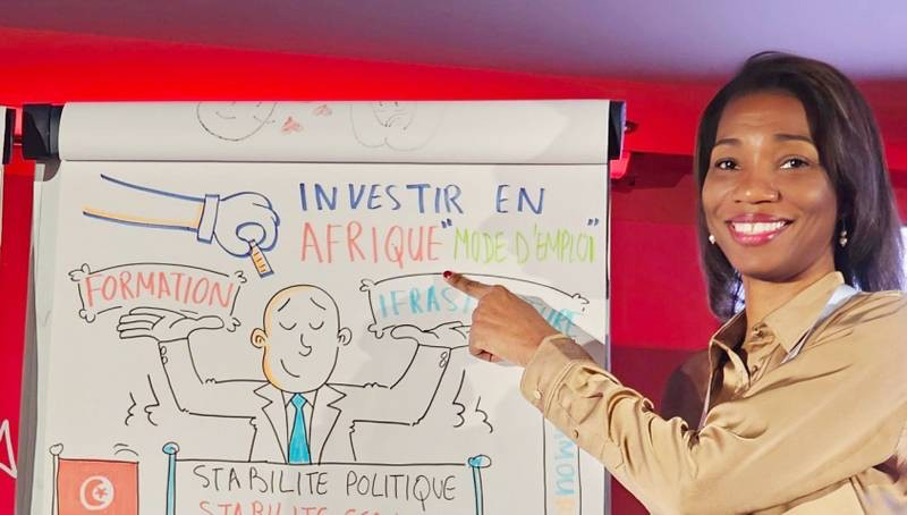 INVESTIR EN
AFRIQUE "MODE D'EMPLOI"
FORMATION
STABILITE POLITIQUE
STABILITE